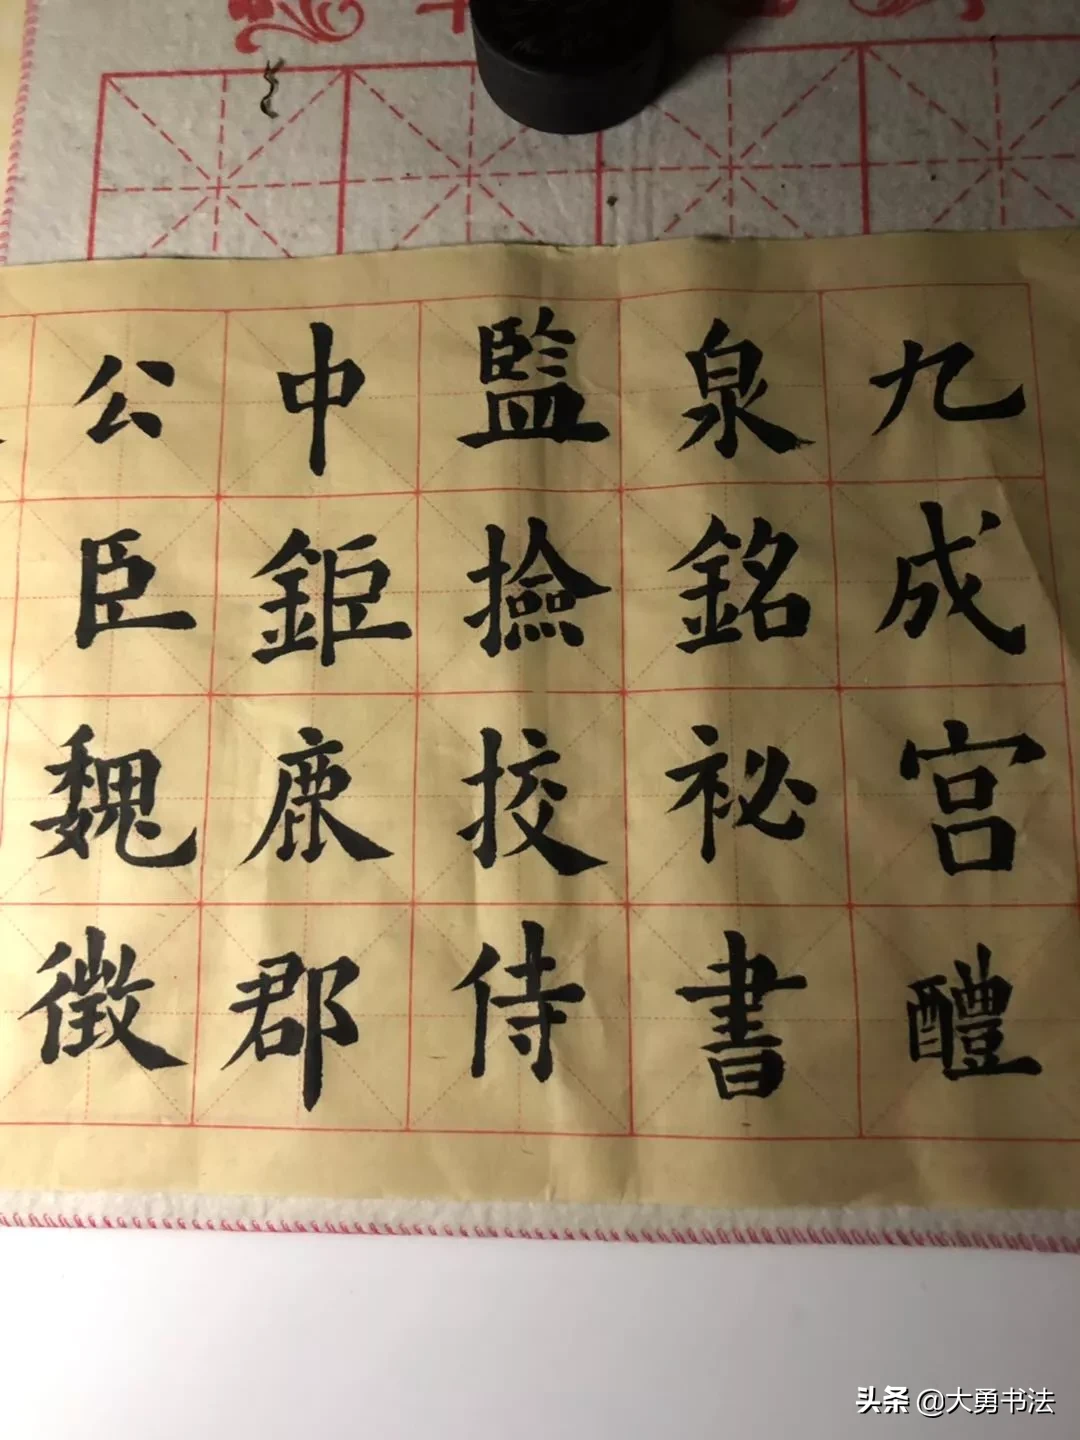 九成宫醴
泉銘祕書
監撿挍侍
中鉅鹿郡
公臣魏徵
头条 @大勇书法